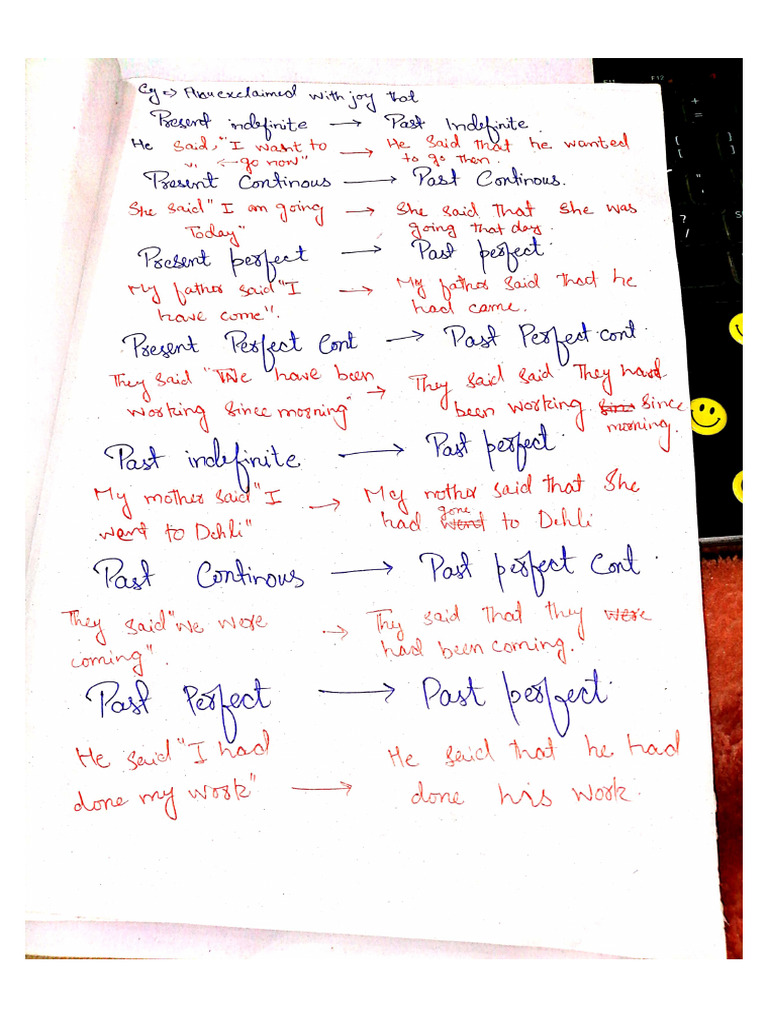 Eg => Abu exclaimed with joy that
Present indefinite → Past Indefinite.
He said, "I want to → He said that he wanted
go now" to go then.
Present Continous → Past Continous.
She said "I am going → She said That she was
Today" going that day.
Present perfect → Past perfect.
My father said "I → My father said that he
have come". had came.
Present Perfect Cont → Past Perfect cont.
They said "We have been → They said said They had
working since morning" been working since
morning.
Past indefinite → Past perfect.
My mother said "I → My mother said that She
went to Dehli" had gone to Dehli
Past Continous → Past perfect Cont.
They said "we were → They said that they were
coming". had been coming.
Past Perfect → Past perfect.
He said "I had → He said that he had
done my work" done his work.